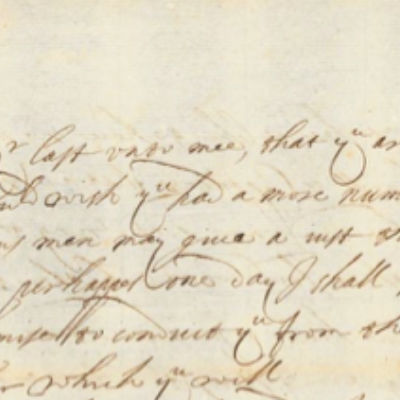 r last unto mee, that yu ar
wish yu had a more num
men may give a iust
perhapps one day I shall
to conduct yu from th
which yu will